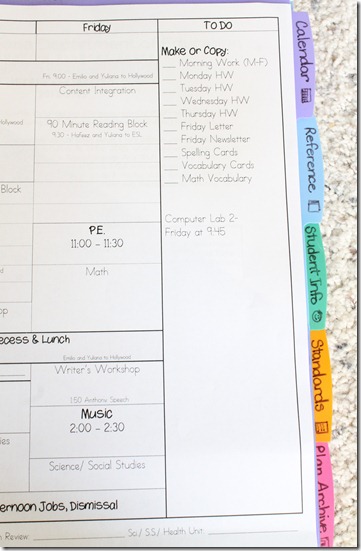 Friday
TO DO
Make or Copy:
___ Morning Work (M-F)
___ Monday HW
___ Tuesday HW
___ Wednesday HW
___ Thursday HW
___ Friday Letter
___ Friday Newsletter
___ Spelling Cards
___ Vocabulary Cards
___ Math Vocabulary
Computer Lab 2-
Friday at 9:45
Fri. 9:00 - Emilio and Yuliana to Hollywood
Content Integration
Hollywood
90 Minute Reading Block
9:30 - Hafeez and Yuliana to ESL
Block
P.E.
11:00 - 11:30
Math
op
ecess & Lunch
Emilio and Yuliana to Hollywood
Writer's Workshop
1:50 Anthony Speech
Music
2:00 - 2:30
ies
Science/ Social Studies
ernoon Jobs, Dismissal
Review:
Sci./ S.S./ Health Unit:
Calendar
Reference
Student Info
Standards
Plan Archive